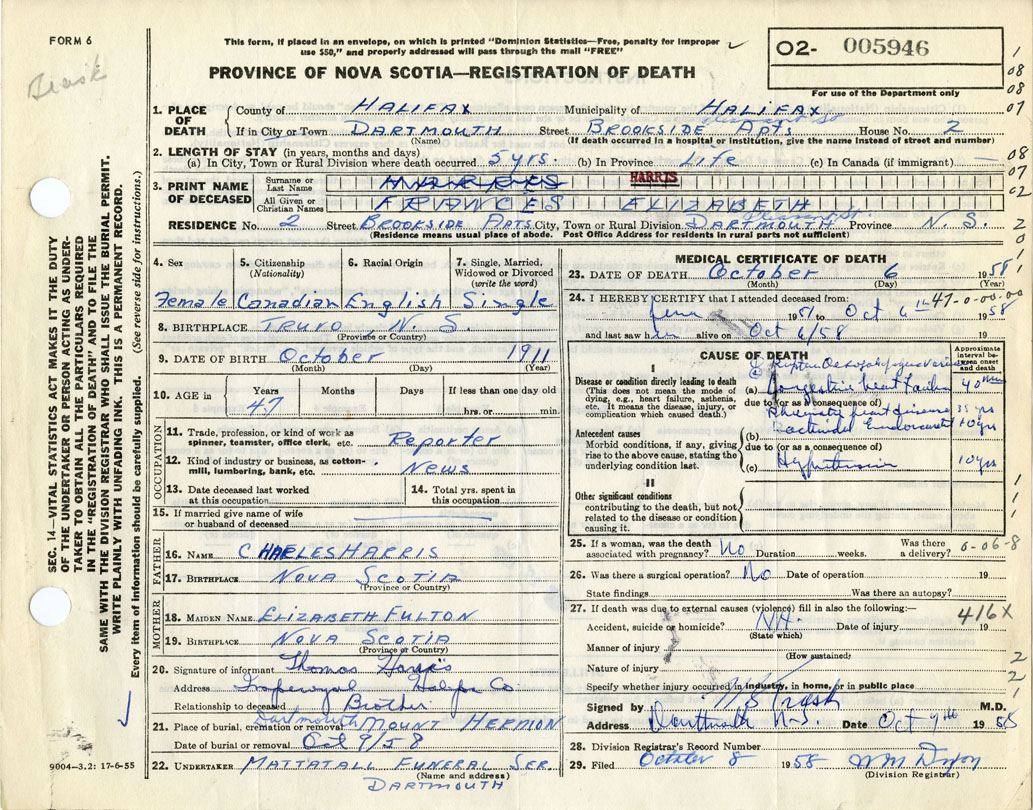 FORM 6
This form, if placed in an envelope, on which is printed "Dominion Statistics—Free, penalty for improper
use $50," and properly addressed will pass through the mail "FREE"
O2- 005946
For use of the Department only
PROVINCE OF NOVA SCOTIA—REGISTRATION OF DEATH
1. PLACE OF DEATH
County of HALIFAX Municipality of HALIFAX
If in City or Town DARTMOUTH Street BROOKSIDE Apts House No. 2
(Name) (If death occurred in a hospital or institution, give the name instead of street and number)
2. LENGTH OF STAY (in years, months and days)
(a) In City, Town or Rural Division where death occurred 5 yrs. (b) In Province Life (c) In Canada (if immigrant) —
3. PRINT NAME OF DECEASED
Surname or Last Name HARRIS
All Given or Christian Names FRANCES ELIZABETH
RESIDENCE No. 2 Street BROOKSIDE APTS City, Town or Rural Division DARTMOUTH Province N. S.
(Residence means usual place of abode. Post Office Address for residents in rural parts not sufficient)
4. Sex 5. Citizenship (Nationality) 6. Racial Origin 7. Single, Married, Widowed or Divorced (write the word)
Female Canadian English Single
8. BIRTHPLACE TRURO, N. S.
(Province or Country)
9. DATE OF BIRTH October 1911
(Month) (Day) (Year)
10. AGE in Years Months Days If less than one day old
47 hrs. or min.
OCCUPATION
11. Trade, profession, or kind of work as spinner, teamster, office clerk, etc. Reporter
12. Kind of industry or business, as cotton-mill, lumbering, bank, etc. News
13. Date deceased last worked at this occupation
14. Total yrs. spent in this occupation
15. If married give name of wife or husband of deceased
FATHER
16. NAME CHARLES HARRIS
17. BIRTHPLACE NOVA SCOTIA
(Province or Country)
MOTHER
18. MAIDEN NAME ELIZABETH FULTON
19. BIRTHPLACE NOVA SCOTIA
(Province or Country)
20. Signature of informant Thomas Harris
Address Imperoyal Halifax Co
Relationship to deceased Brother
21. Place of burial, cremation or removal Dartmouth MOUNT HERMON
Date of burial or removal Oct 9/58
22. UNDERTAKER MATTATALL FUNERAL SER.
(Name and address)
DARTMOUTH
MEDICAL CERTIFICATE OF DEATH
23. DATE OF DEATH October 6 1958
(Month) (Day) (Year)
24. I HEREBY CERTIFY that I attended deceased from: 47-0-00-00
June 195 to Oct 6th 1958
and last saw her alive on Oct 6/58
CAUSE OF DEATH
Approximate interval between onset and death
I
Disease or condition directly leading to death
(This does not mean the mode of dying, e.g., heart failure, asthenia, etc. It means the disease, injury, or complication which caused death.)
(a) Congestive heart failure 40
due to (or as a consequence of)
Rheumatic heart disease 35 yrs
Antecedent causes
Morbid conditions, if any, giving rise to the above cause, stating the underlying condition last.
(b) Bacterial Endocarditis 10 yrs
due to (or as a consequence of)
(c) Hypertension 10 yrs
II
Other significant conditions contributing to the death, but not related to the disease or condition causing it.
25. If a woman, was the death associated with pregnancy? No Duration weeks. Was there a delivery? 0-06-8
26. Was there a surgical operation? No Date of operation 19
State findings Was there an autopsy?
27. If death was due to external causes (violence) fill in also the following:— 416X
Accident, suicide or homicide? Date of injury 19
(State which)
Manner of injury
(How sustained)
Nature of injury
Specify whether injury occurred in industry, in home, or in public place
Signed by M.D.
Address Dartmouth N.S. Date Oct 1958
28. Division Registrar's Record Number
29. Filed October 8 1958
(Division Registrar)
SEC. 14—VITAL STATISTICS ACT MAKES IT THE DUTY
OF THE UNDERTAKER OR PERSON ACTING AS UNDER-
TAKER TO OBTAIN ALL THE PARTICULARS REQUIRED
IN THE "REGISTRATION OF DEATH" AND TO FILE THE
SAME WITH THE DIVISION REGISTRAR WHO SHALL ISSUE THE BURIAL PERMIT.
WRITE PLAINLY WITH UNFADING INK. THIS IS A PERMANENT RECORD.
Every item of information should be carefully supplied. (See reverse side for instructions.)
9004—3.2: 17-6-55
1
08
08
07
08
07
02
2
0
1
1
1
2
2
1